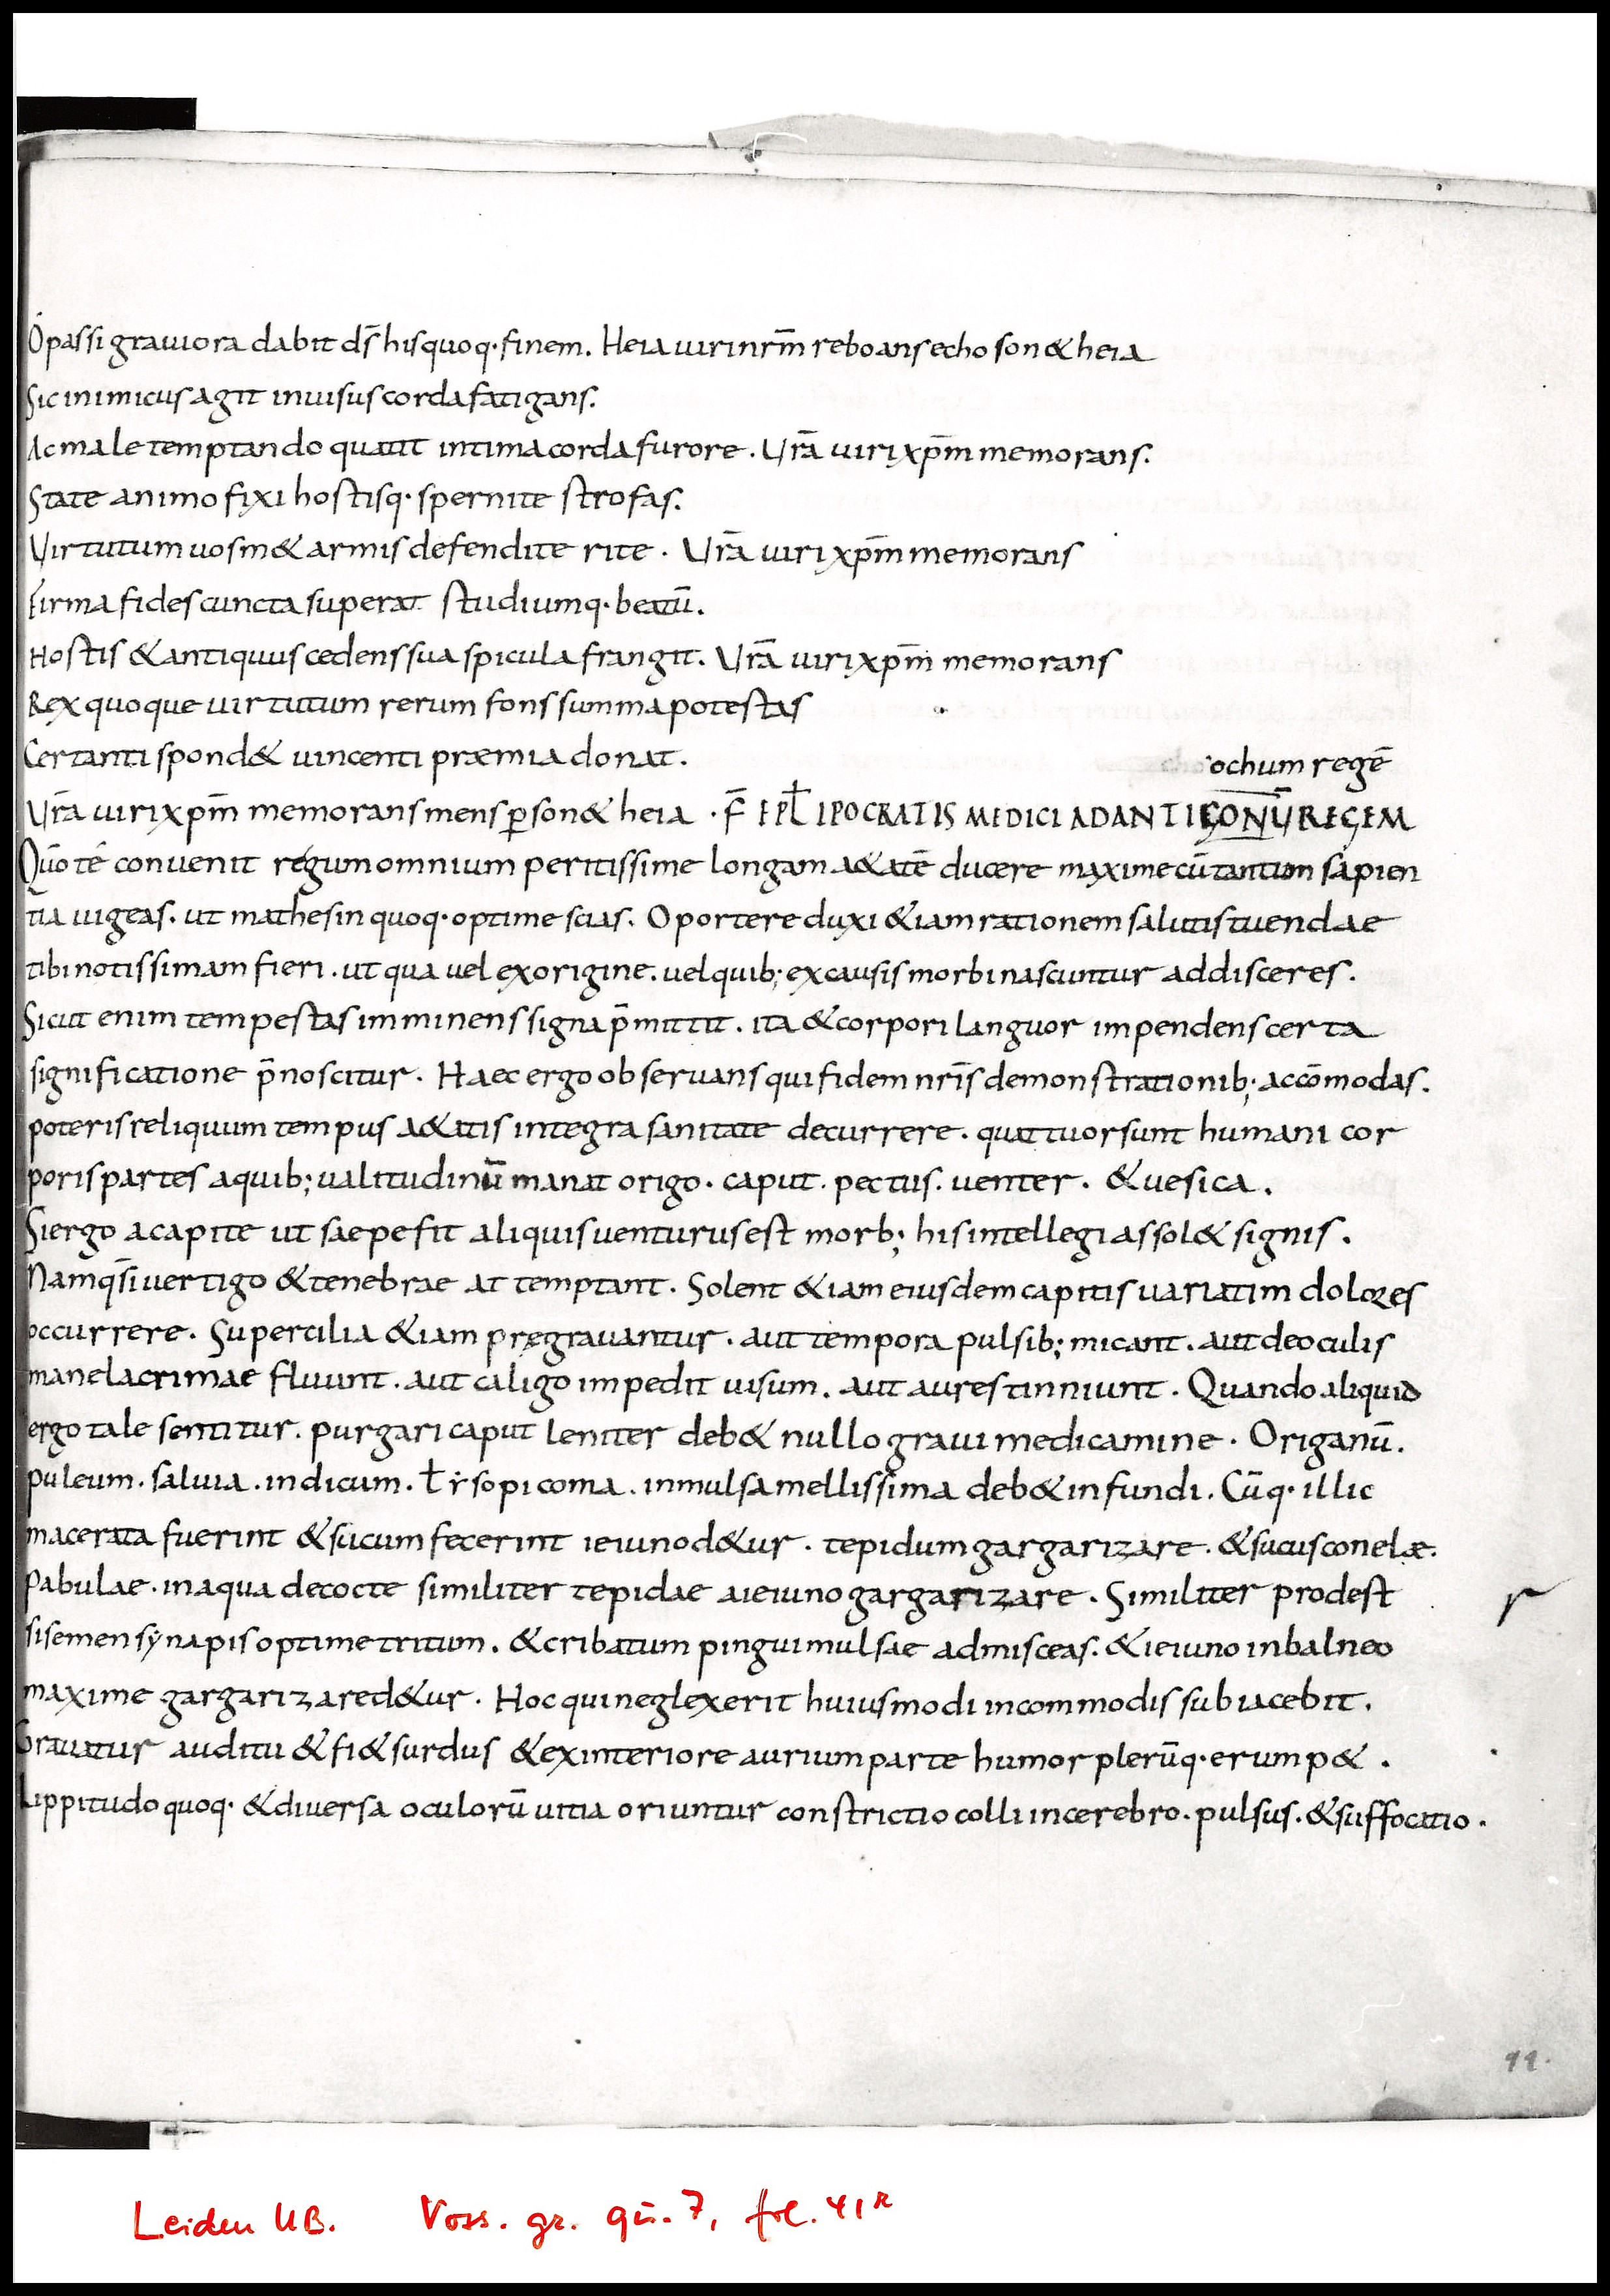 O passi graviora dabit ds̄ his quoq· finem. Heia uiri nr̄m reboans echo son& heia
Sic inimicus agit inuisus corda fatigans.
Ac male temptando quatit intima corda furore. Vr̄a uiri xp̄m memorans.
State animo fixi hostisq· spernite strofas.
Virtutum uos m& armis defendite rite. Vr̄a uiri xp̄m memorans
Firma fides cuncta superat studiumq· beatū.
Hostis & antiquus cedens sua spicula frangit. Vr̄a uiri xp̄m memorans
Rex quoque uirtutum rerum fons summa potestas
Certanti spond& uincenti præmia donat.
ochum regē
Vr̄a uiri xp̄m memorans mens ꝑson& heia · F̄ EPL̄ IPOCRATIS MEDICI AD ANTIGONŪ REGEM
Quō tē conuenit regum omnium peritissime longam a&atē ducere maxime cū tantum sapien
tia uigeas. ut mathesin quoq· optime scias. Oportere duxi &iam rationem salutis tuendae
tibi notissimam fieri. ut qua uel ex origine. uel quib; ex causis morbi nascuntur addisceres.
Sicut enim tempestas imminens signa p̄mittit. ita & corpori languor impendens certa
significatione p̄noscitur. Haec ergo obseruans qui fidem nr̄is demonstrationib; accōmodas.
poteris reliquum tempus a&atis integra sanitate decurrere. quattuor sunt humani cor
poris partes a quib; ualitudinū manat origo. caput. pectus. uenter. & uesica.
Si ergo a capite ut saepe fit aliquis uenturus est morb; his intellegi assol& signis.
Namq· si uertigo & tenebrae at temptant. Solent &iam eiusdem capitis uariatim dolores
occurrere. Supercilia &iam pręgrauantur. aut tempora pulsib; micant. aut de oculis
mane lacrimae fluunt. aut caligo impedit uisum. aut aures tinniunt. Quando aliquid
ergo tale sentitur. purgari caput leniter deb& nullo graui medicamine. Origanū.
puleum. saluia. indicum. ł ẏsopi coma. in mulsa mellissima deb& infundi. Cūq· illic
macerata fuerint & sucum fecerint ieiuno d&ur. tepidum gargarizare. & sucus conelæ.
Pabulae. in aqua decocte similiter tepidae a ieiuno gargarizare. Similiter prodest
si semen sẏnapis optime tritum. & cribatum pingui mulsae admisceas. & ieiuno in balneo
maxime gargarizare d&ur. Hoc qui neglexerit huiusmodi incommodis subiacebit.
Grauatur auditu & fi& surdus & ex interiore aurium parte humor plerūq· erump&.
Lippitudo quoq· & diuersa oculorū uitia oriuntur constrictio colli in cerebro. pulsus. & suffocatio.
r
41.
Leiden UB. Voss. gr. qu. 7, fol. 41ʳ